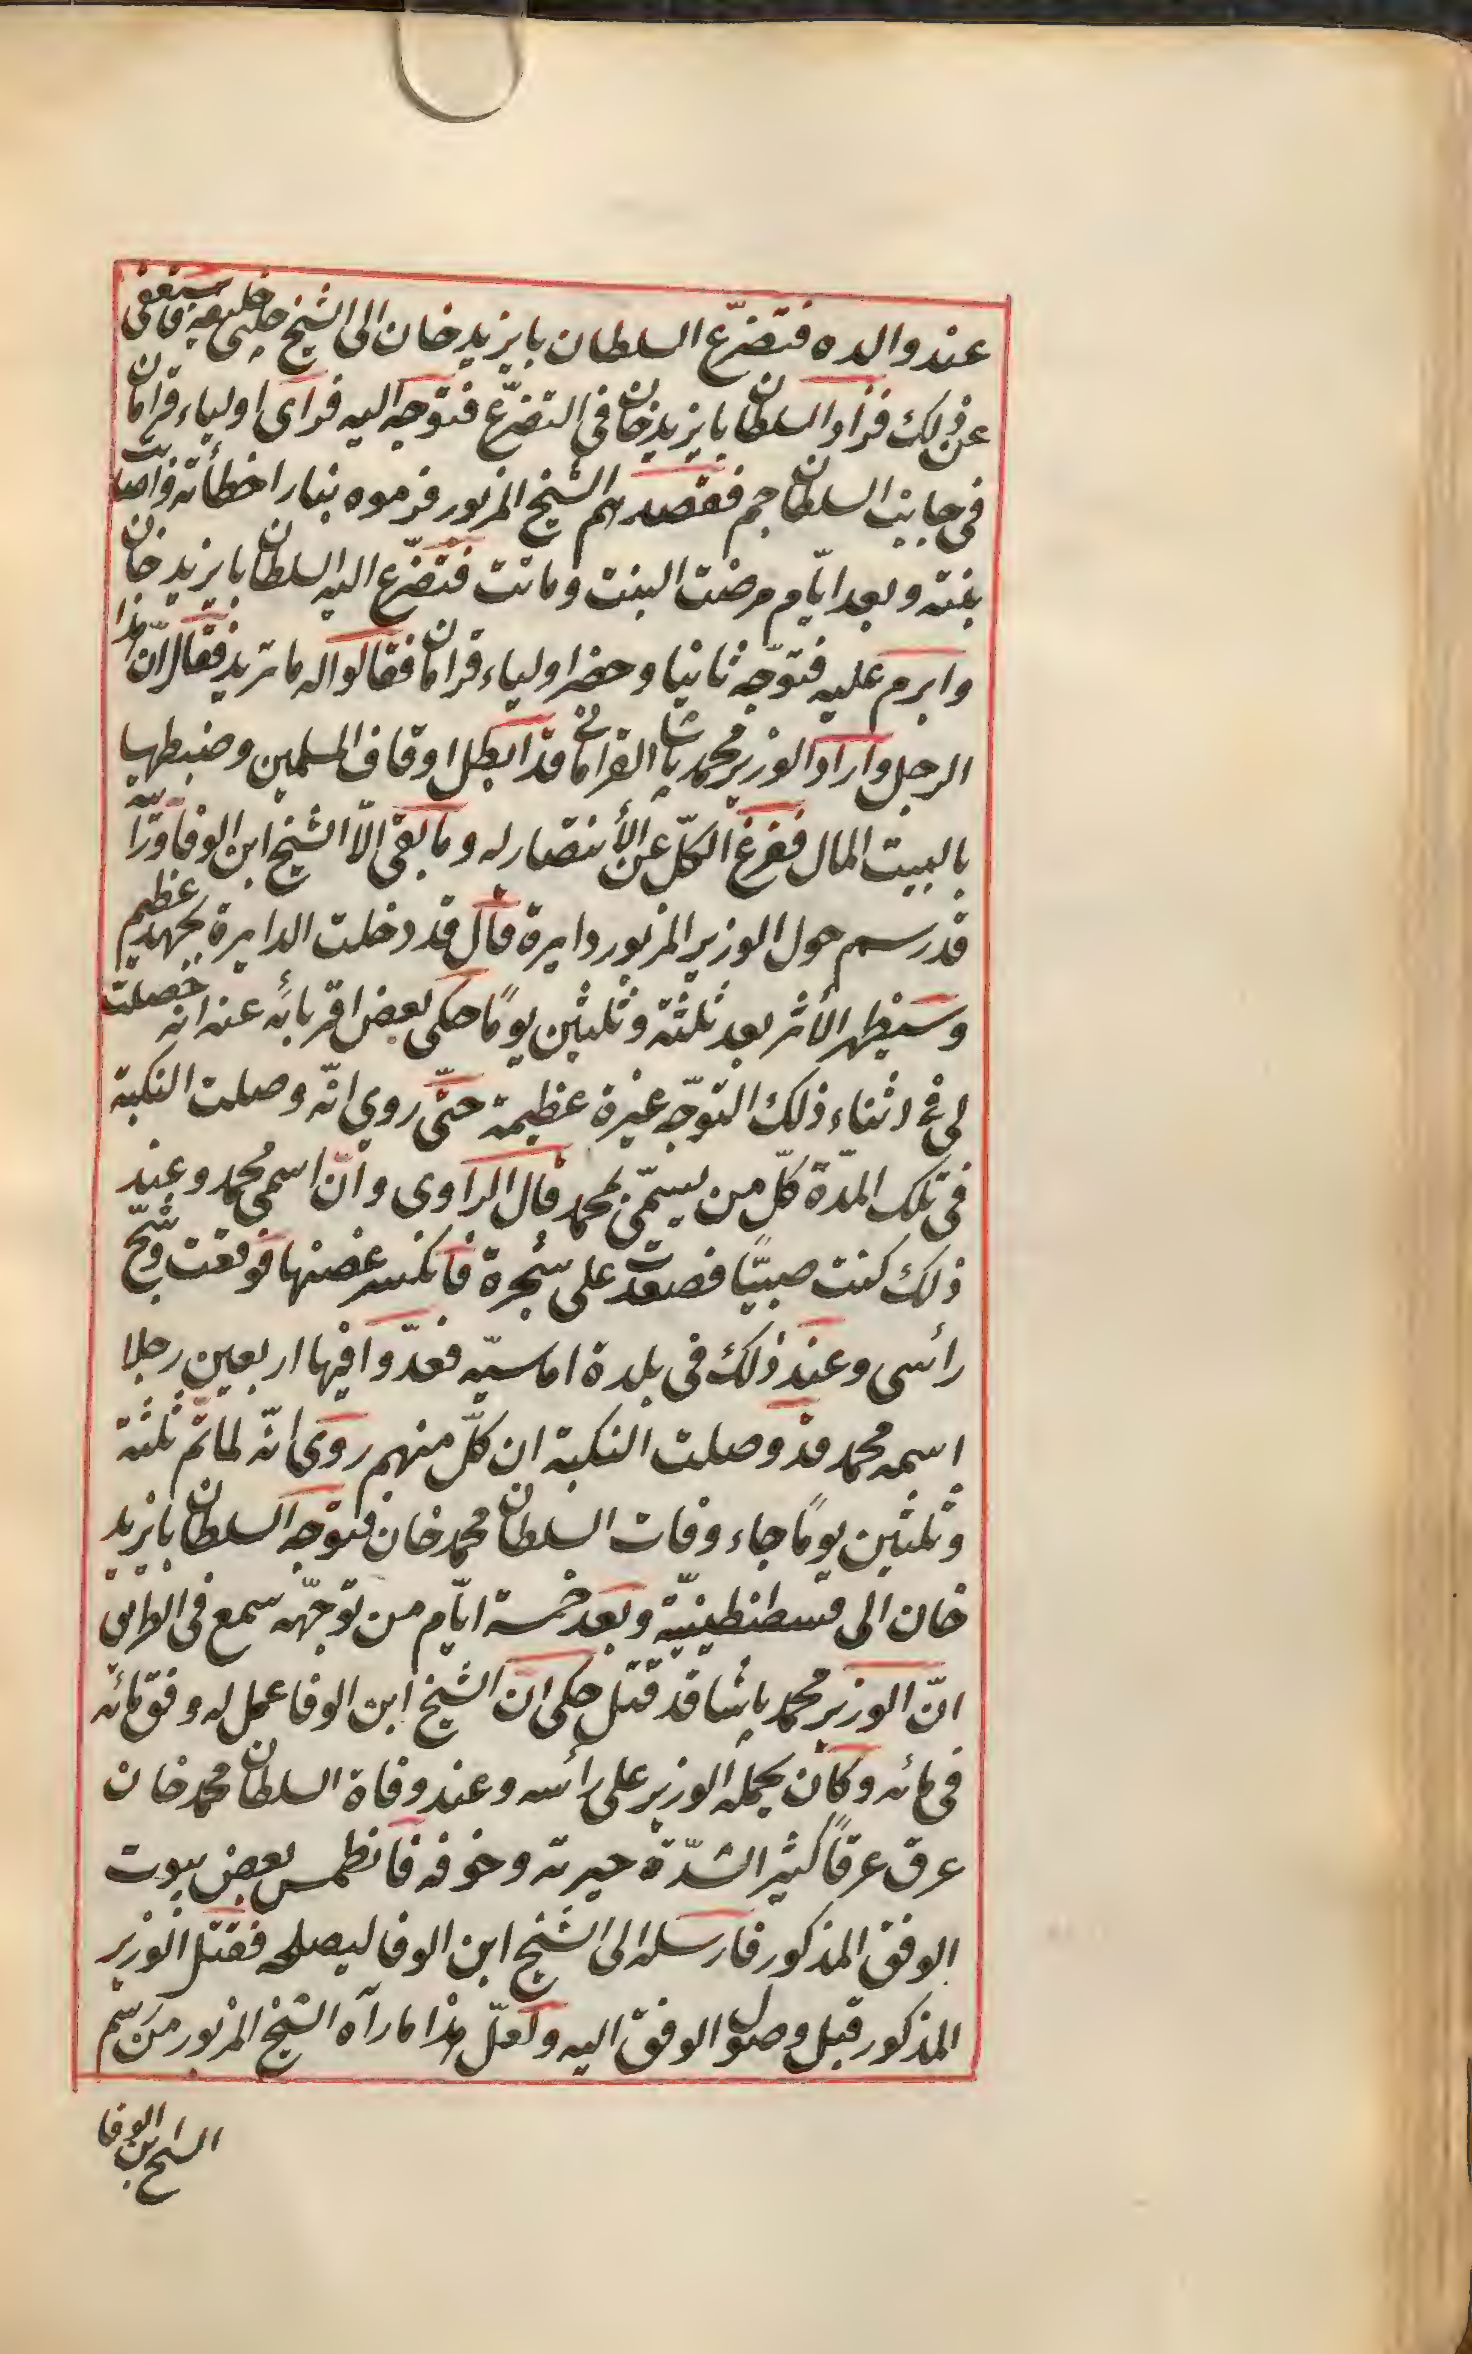 عند والده فتضرّع السلطان بايزيد خان الى الشيخ چلبى خليفه فاستعفى
عن ذلك فزاد السلطان بايزيد خان فى التضرّع فتوجه اليه فرأى اولياء قرامان
فى جانب السلطان جم فقصدهم الشيخ المزبور فرموه بنار اخطأته واصابت
بنته وبعد ايّام مرضت البنت وماتت فتضرّع اليه السلطان بايزيد خان
وابرم عليه فتوجّه ثانيا وحضر اولياء قرامان فقالوا له ما تريد فقال انّ هذا
الرجل واراد الوزير محمد پاشا القرامانى قد ابطل اوقاف المسلمين وضبطها
بالبيت المال ففرغ الكلّ عن الأنتصار له وما بقى الاّ الشيخ ابن الوفا ورأيته
قد رسم حول الوزير المزبور دايرة قال قد دخلت الدايرة بجهد عظيم
وسيظهر الأثر بعد ثلثة وثلثين يومًا حكى بعض اقربائه عنه انه حصلت
لى فى اثناء ذلك التوجّه غيرة عظيمة حتّى روى انّه وصلت النكبة
فى تلك المدّة كلّ من يسمّى بمحمد قال الراوى وانّ اسمى محمد وعند
ذلك كنت صبيّا فصعدت على شجرة فانكسر غصنها فوقعت وشجّ
رأسى وعند ذلك فى بلدة اماسيّه فعدّوا فيها اربعين رجلا
اسمه محمد قد وصلت النكبة ان كلّ منهم روى انّه لما تمّ ثلثة
وثلثين يومًا جاء وفات السلطان محمد خان فتوجّه السلطان بايزيد
خان الى قسطنطينيّة وبعد خمسة ايّام من توجّهه سمع فى الطريق
انّ الوزير محمد پاشا قد قتل حكى انّ الشيخ ابن الوفا عمل له وفق مائه
فى مائه وكان يحمله الوزير على رأسه وعند وفاة السلطان محمد خان
عرق عرقًا كثيرا لشدّة حيرته وخوفه فانطمس بعض بيوت
الوفق المذكور فارسله الى الشيخ ابن الوفا ليصلحه فقتل الوزير
المذكور قبل وصول الوفق اليه ولعلّ هذا ما رآه الشيخ المزبور من رسم
الشيخ ابن الوفا